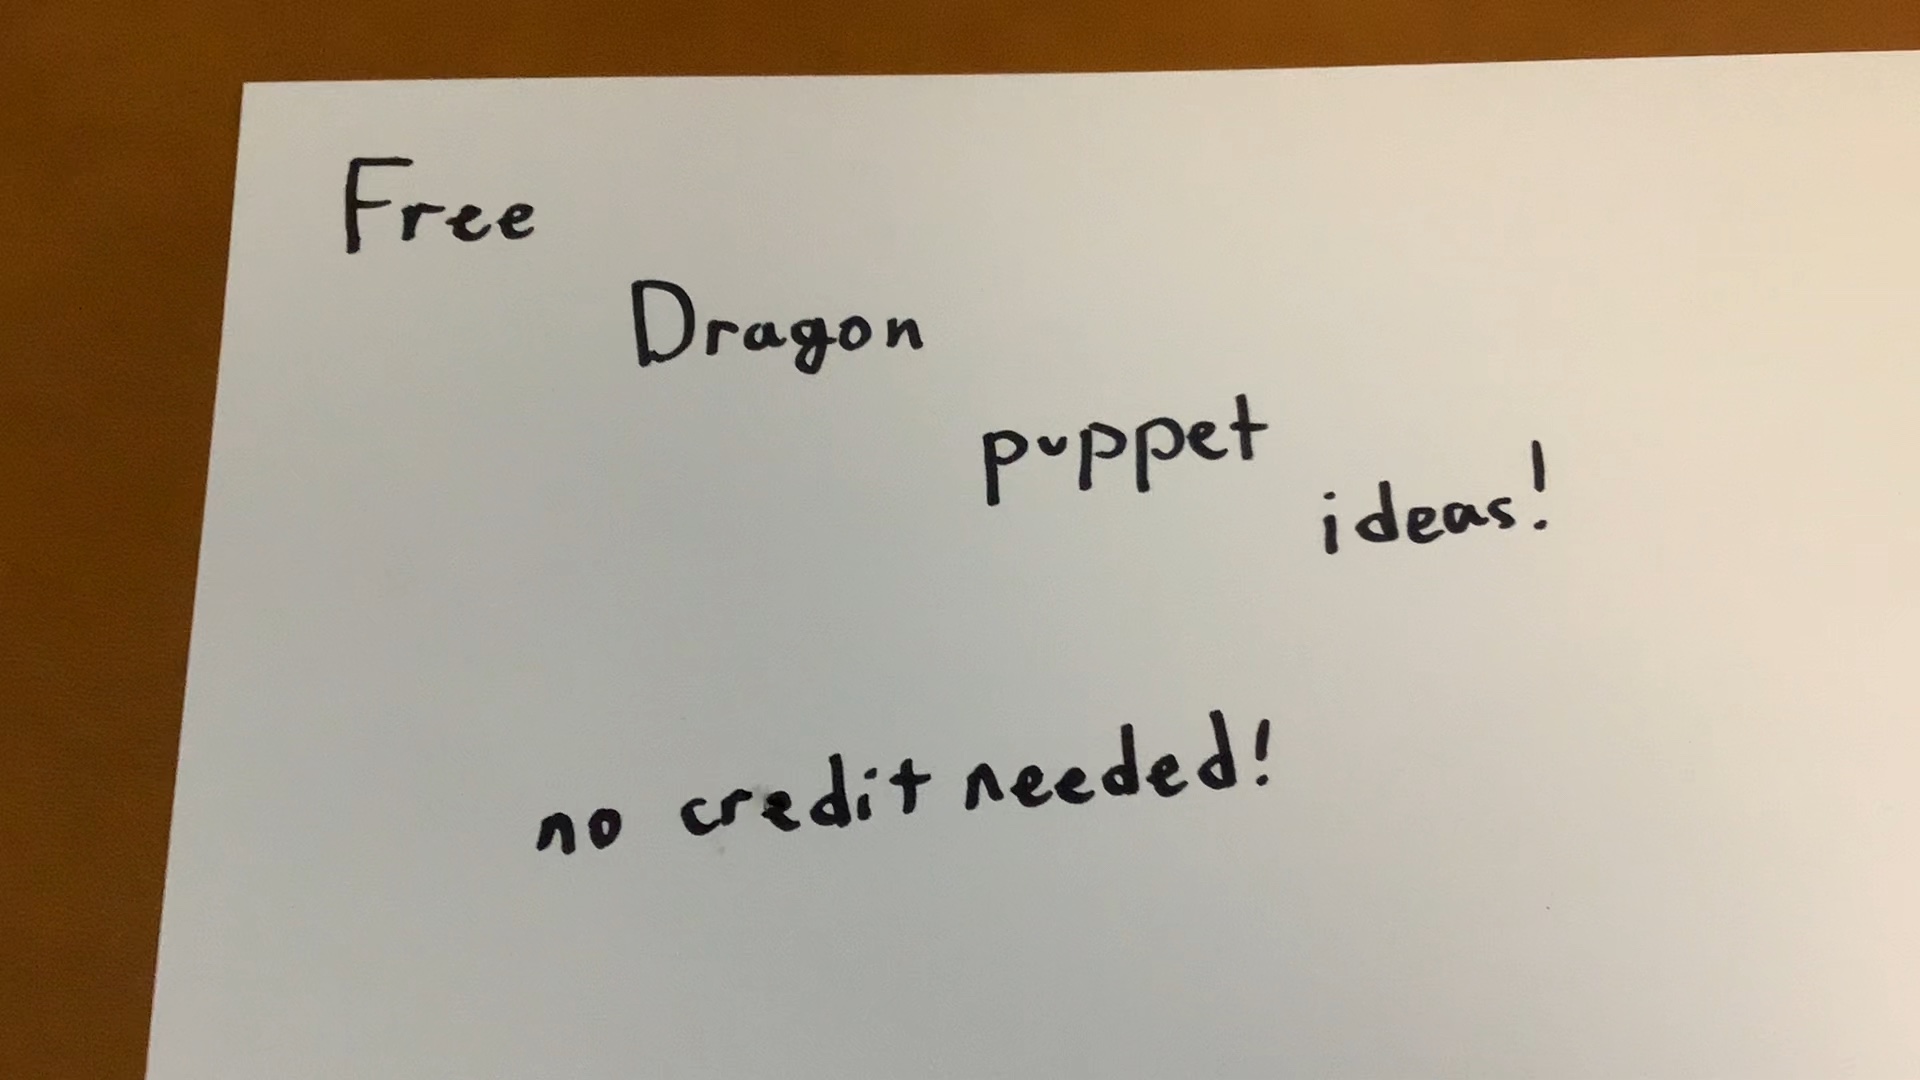 Free
Dragon
puppet
ideas!
no credit needed!